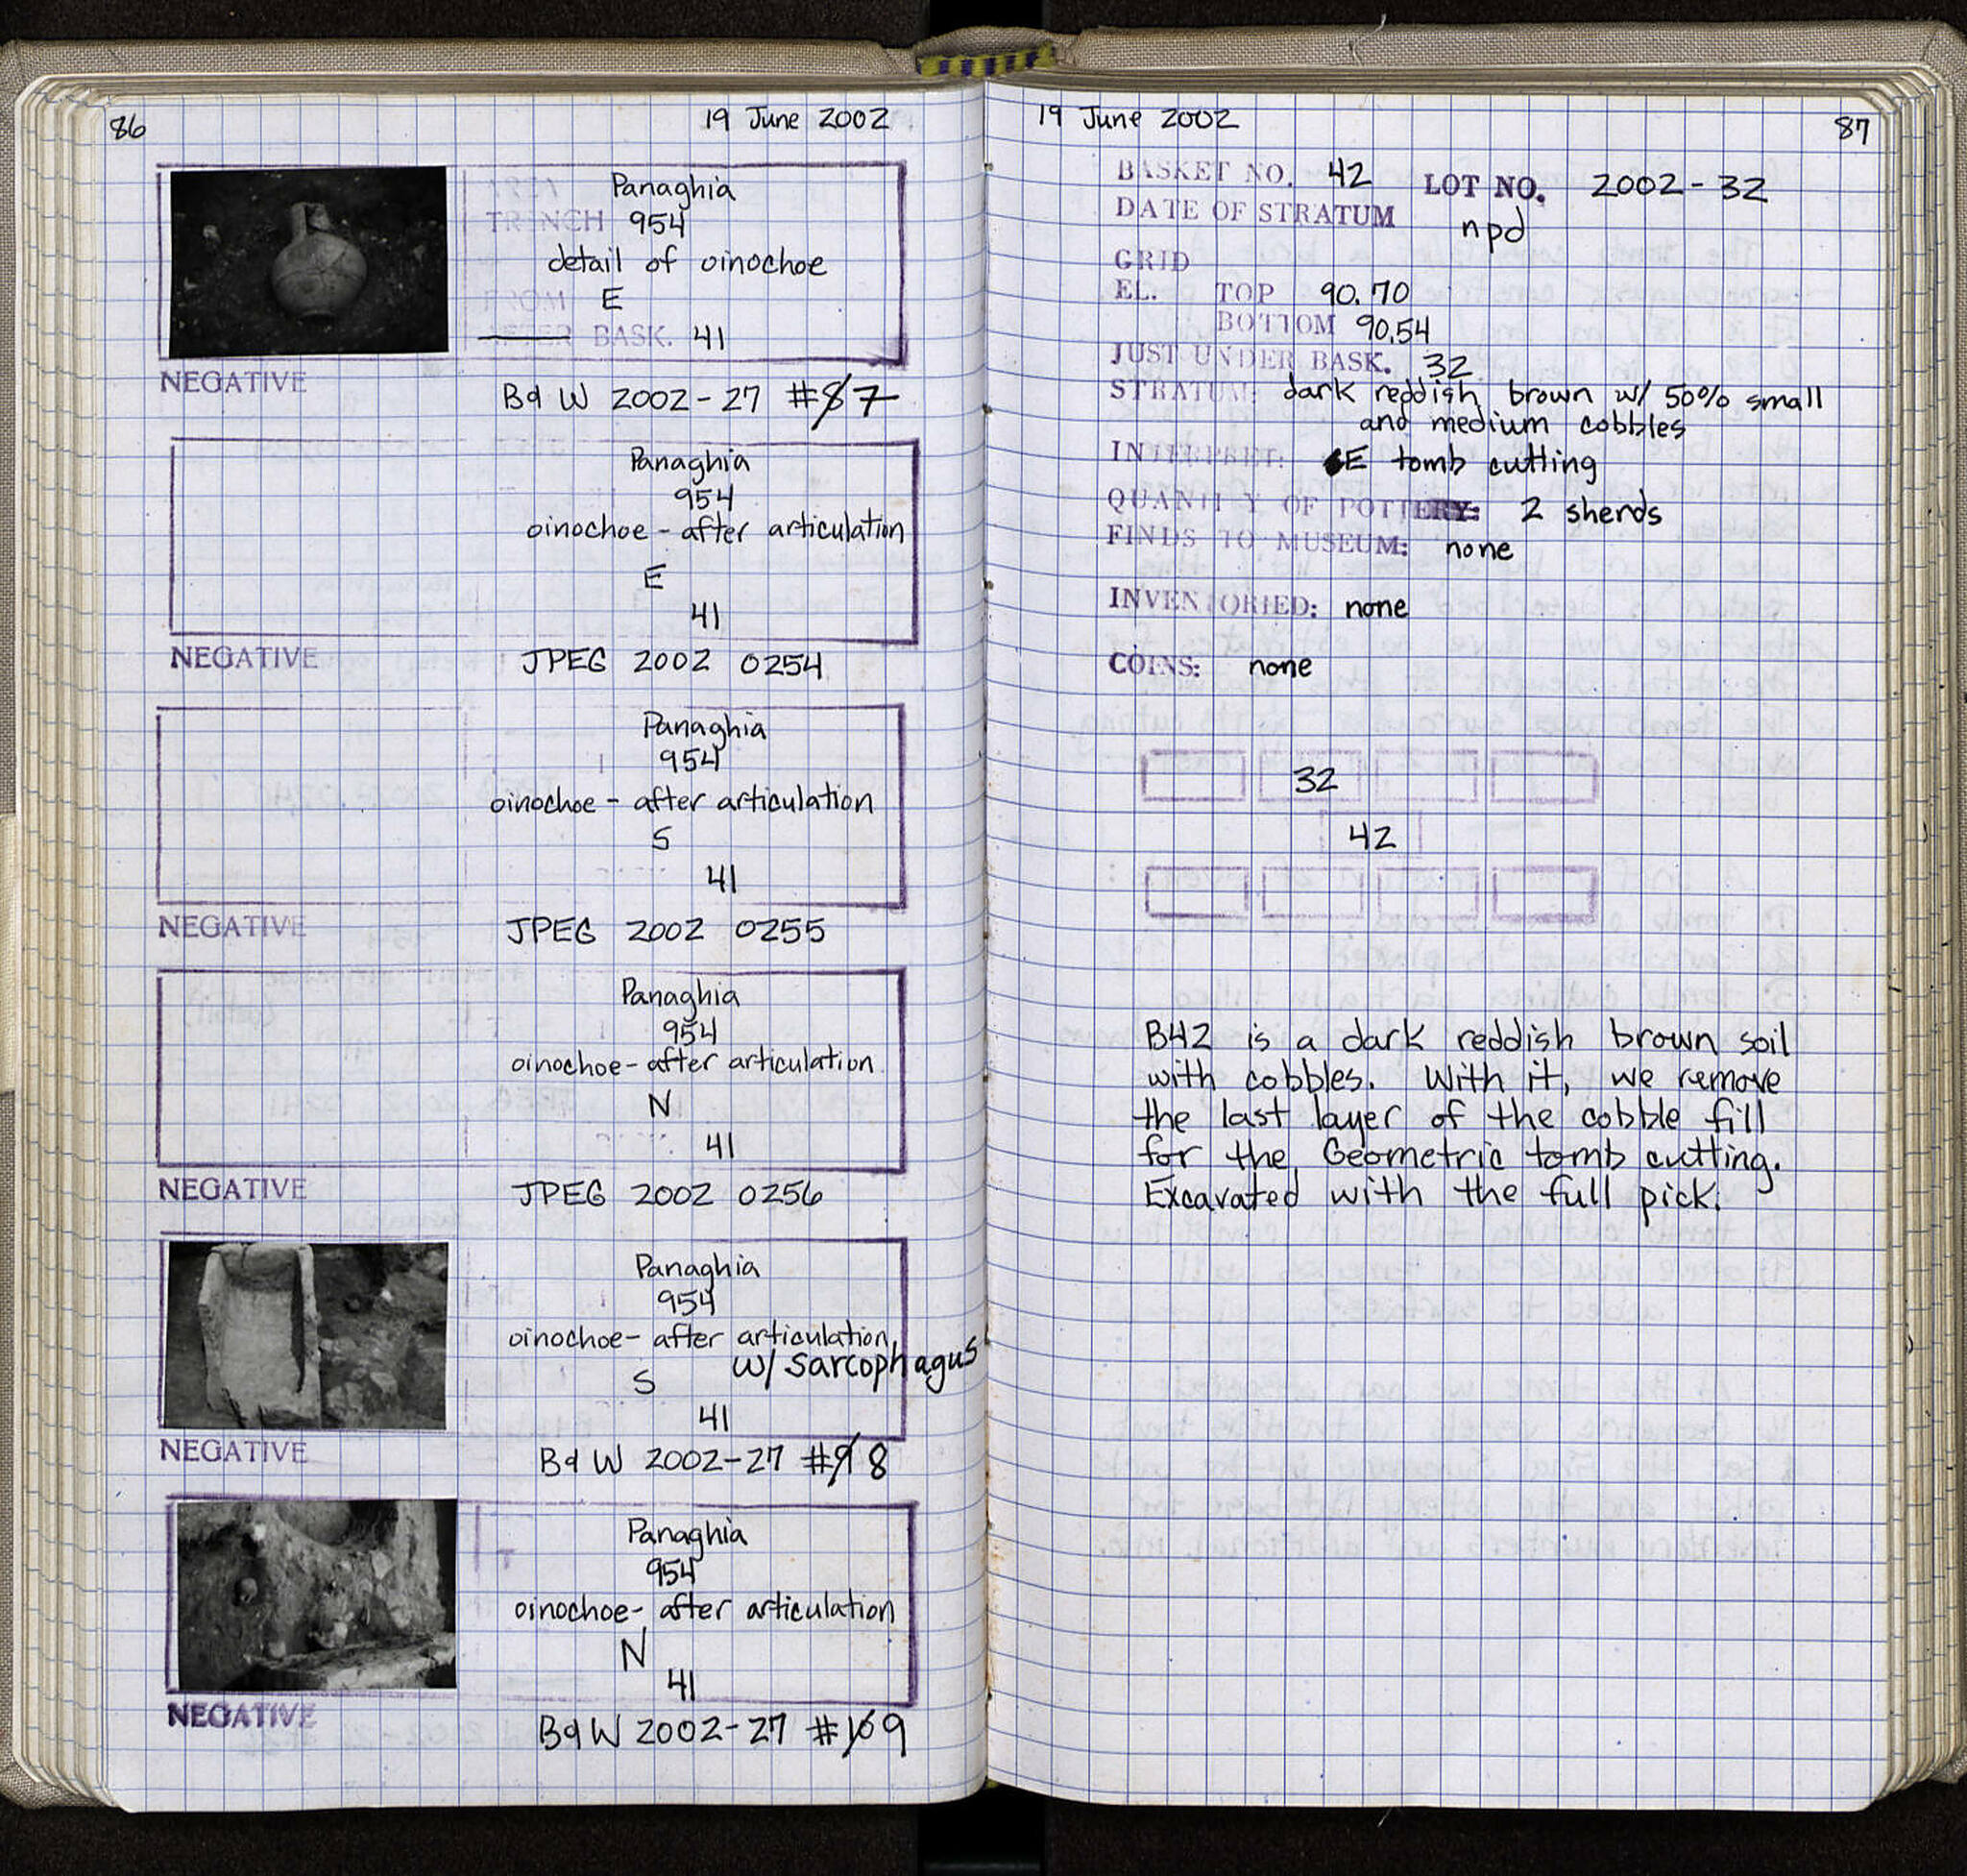 86
19 June 2002
Panaghia
TRENCH 954
detail of oinochoe
FROM E
AFTER BASK. 41
NEGATIVE
B&W 2002-27 #87
Panaghia
954
oinochoe - after articulation
E
41
NEGATIVE
JPEG 2002 0254
Panaghia
954
oinochoe - after articulation
S
41
NEGATIVE
JPEG 2002 0255
Panaghia
954
oinochoe - after articulation
N
41
NEGATIVE
JPEG 2002 0256
Panaghia
954
oinochoe - after articulation,
w/ sarcophagus
S
41
NEGATIVE
B&W 2002-27 #98
Panaghia
954
oinochoe - after articulation
N
41
NEGATIVE
B&W 2002-27 #109
19 June 2002
87
BASKET NO. 42 LOT NO. 2002-32
DATE OF STRATUM npd
GRID
EL. TOP 90.70
BOTTOM 90.54
JUST UNDER BASK. 32
STRATUM: dark reddish brown w/ 50% small
and medium cobbles
INTERPRET: E tomb cutting
QUANTITY OF POTTERY: 2 sherds
FINDS TO MUSEUM: none
INVENTORIED: none
COINS: none
32
42
B42 is a dark reddish brown soil
with cobbles. With it, we remove
the last layer of the cobble fill
for the Geometric tomb cutting.
Excavated with the full pick.